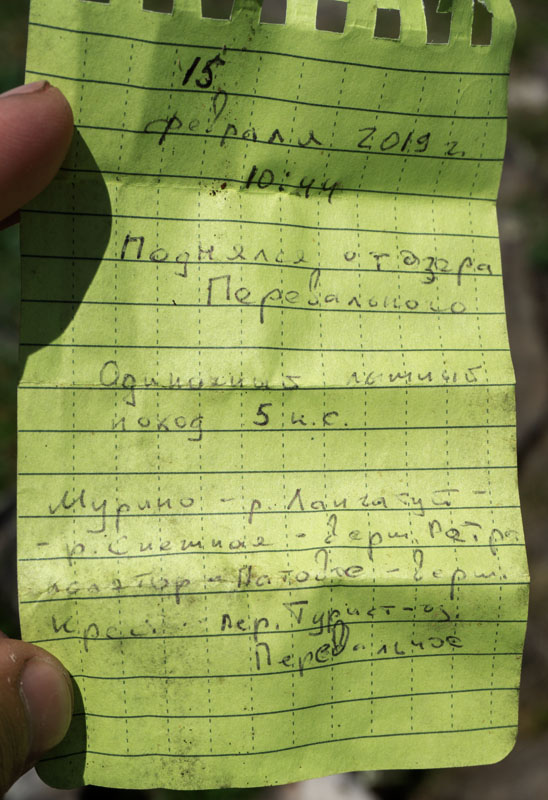 15
февраля 2019 г.
10:44
Поднялся от озера
Перевального
Одиночный лыжный
поход 5 к.с.
Мурино - р. Лангатуй -
- р. Снежная - верш.
- верш.
пер. Турист - оз.
Перевальное